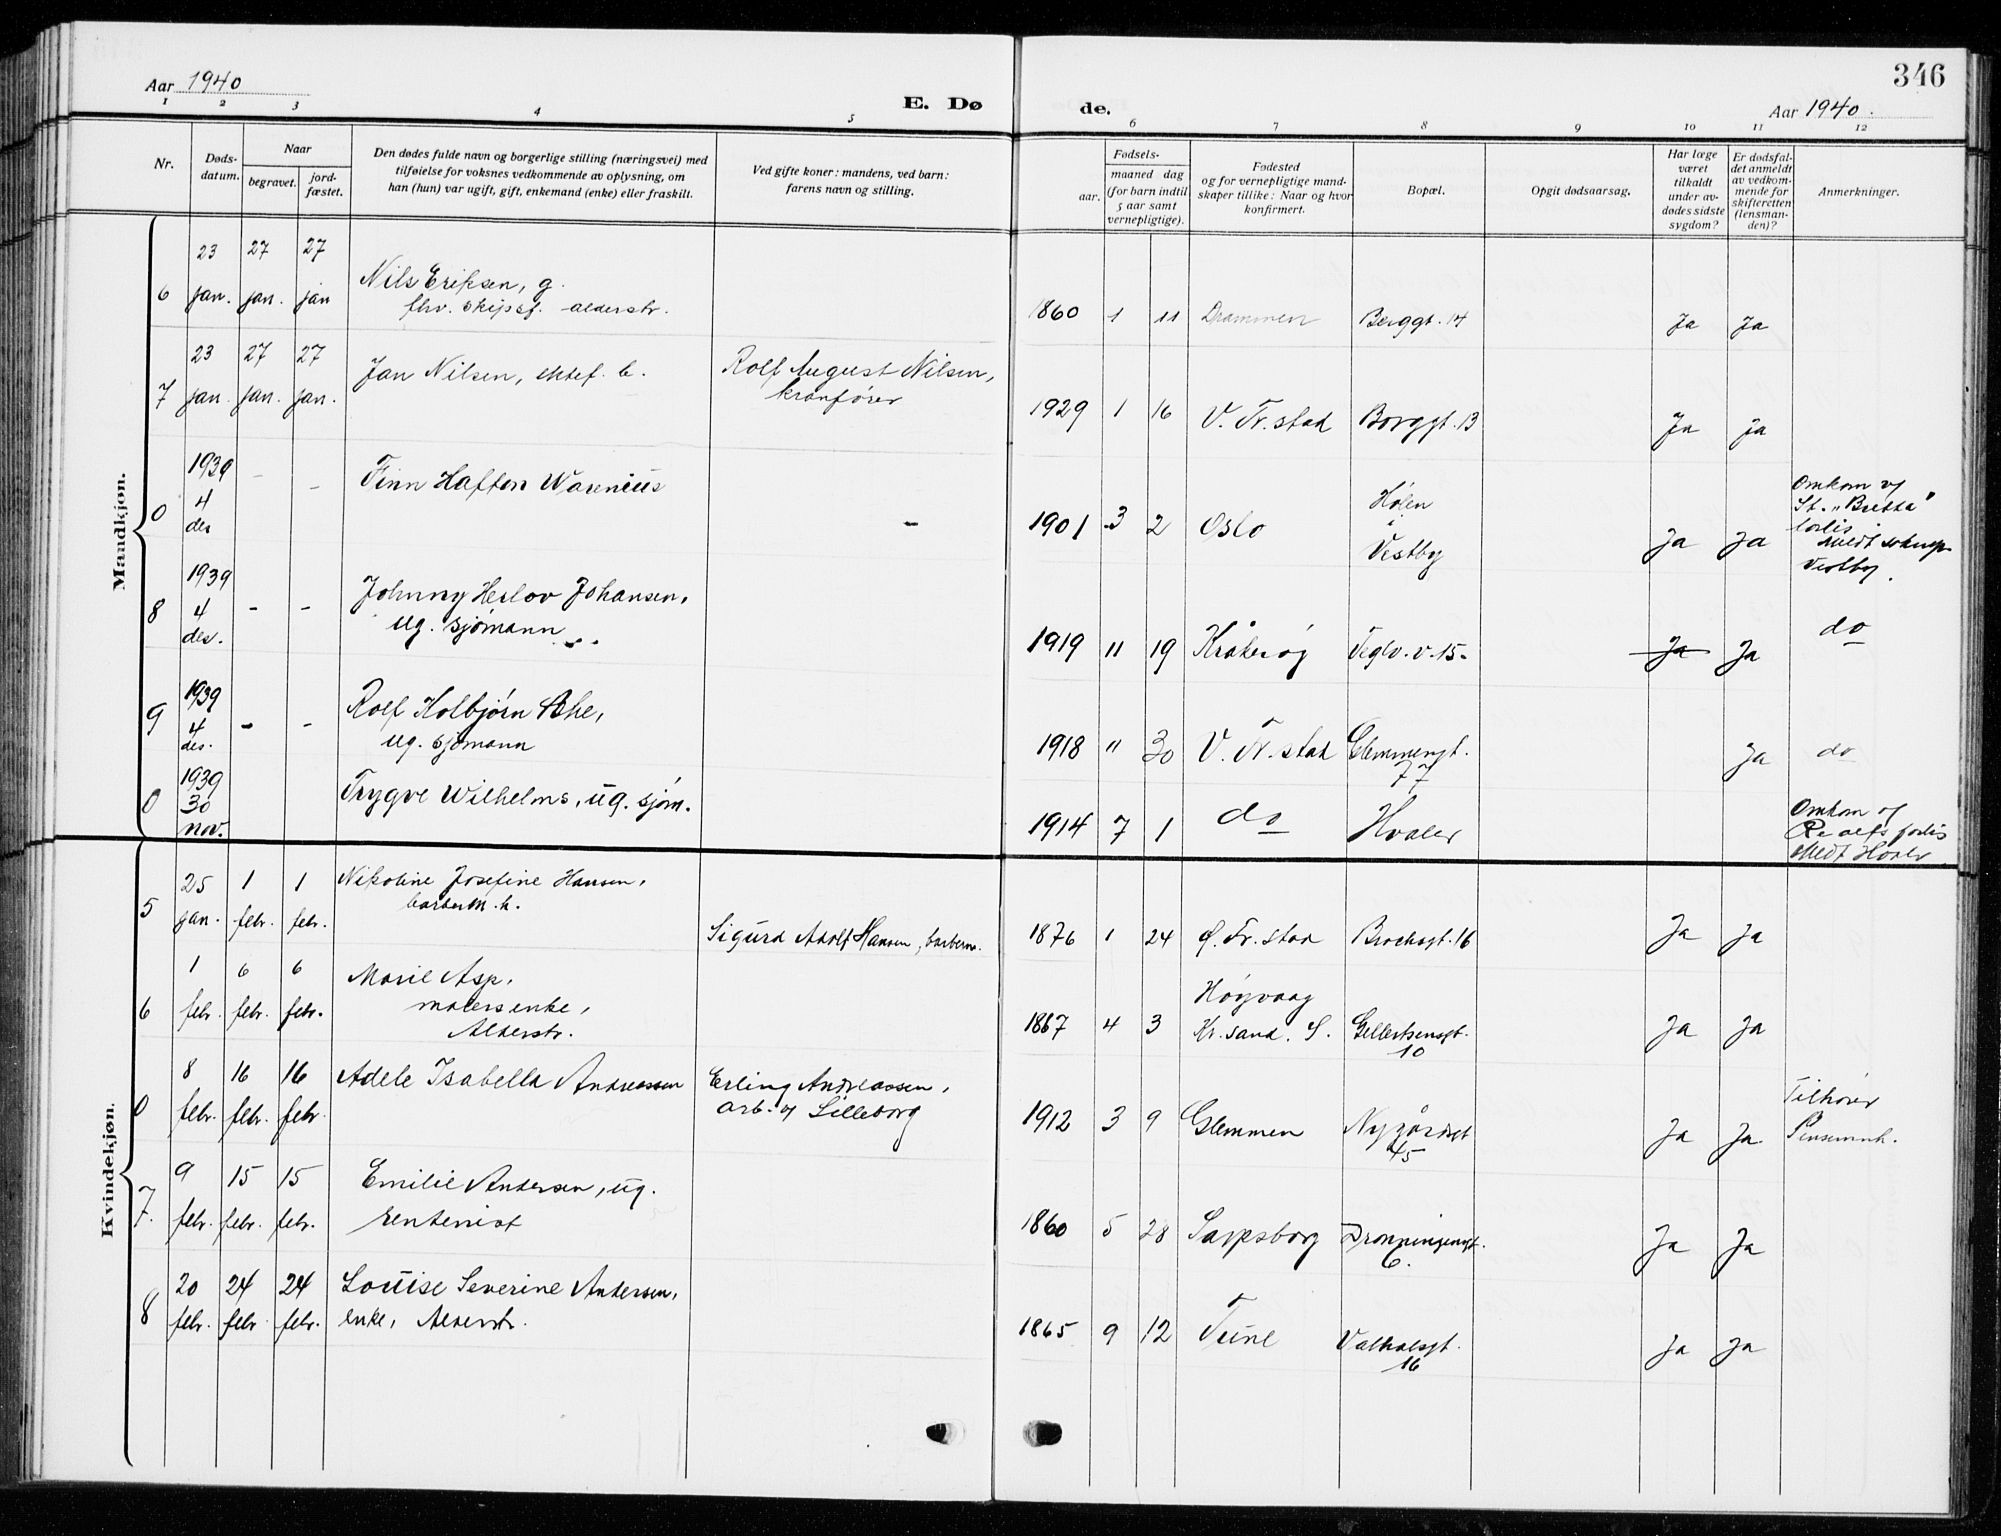 346
Aar 1940
E. Dø
de.
Aar 1940.
1 2 3 4 5 6 7 8 9 10 11 12
Nr.
Døds-
datum.
Naar
begravet.
jord-
fæstet.
Den dødes fulde navn og borgerlige stilling (næringsvei) med
tilføielse for voksnes vedkommende av oplysning, om
han (hun) var ugift, gift, enkemand (enke) eller fraskilt.
Ved gifte koner: mandens, ved barn:
farens navn og stilling.
Fødsels-
aar.
maaned dag
(for barn indtil
5 aar samt
vernepligtige).
Fødested
og for vernepligtige mand-
skaper tillike: Naar og hvor
konfirmert.
Bopæl.
Opgit dødsaarsag.
Har læge
været
tilkaldt
under av-
dødes sidste
sygdom?
Er dødsfal-
det anmeldt
av vedkom-
mende for
skifteretten
(lensman-
den)?
Anmerkninger.
Mandkjøn.
6 23 jan. 27 jan. 27 jan
Nils Eriksen, g.
fhv. skipsf. alderstr.
1860 1 11 Drammen Berggt. 14 Ja Ja
7 23 jan. 27 jan. 27 jan.
Jan Nilsen, ektef. b.
Rolf August Nilsen,
kranfører
1929 1 16 V. Fr.stad Borggt. 13 Ja Ja
0 1939 4 des - -
Finn Hafton Warenius
-
1901 3 2 Oslo Hølen
Vestby Ja Ja
Omkom v/
St. "Bretta"
forlis.
Vestby.
8 1939 4 des. - -
Johnny Herlov Johansen,
ug. sjømann
1919 11 19 Kråkerøy Teglv. v. 15. Ja Ja do
9 1939 4 des. - -
Rolf Kolbjørn
ug. sjømann
1918 11 30 V. Fr.stad Glemmengt.
77 Ja do
0 1939 30 nov.
Trygve Wilhelms, ug. sjøm.
1914 7 1 do Hvaler
Omkom v/
forlis
Meldt Hvaler
Kvindekjøn.
5 25 jan. 1 febr. 1 febr.
Nikoline Josefine Hansen,
barberm. h.
Sigurd Adolf Hansen, barberm.
1876 1 24 Ø. Fr.stad Brochsgt. 16 Ja Ja
6 1 febr. 6 febr. 6 febr.
Marie Asp,
malersenke,
Alderstr.
1867 4 3 Høyvaag
Kr.sand. S. Gellertsensgt.
10 Ja Ja
0 8 febr. 16 febr. 16 febr.
Adele Isabella Andreassen
Erling Andreassen,
arb. v/ Lilleborg
1912 3 9 Glemmen Nygårdsgt
45 Ja Ja.
Tilhører
Pinsemnh.
7. 9 febr. 15 febr. 15 febr.
Emilie Andersen, ug.
rentenist
1860 5 28 Sarpsborg Dronningensgt.
6. Ja Ja
8 20 febr. 24 febr 24 febr.
Louise Severine Andersen,
enke, Alderstr.
1865 9 12 Tune Valhalsgt.
16 Ja Ja